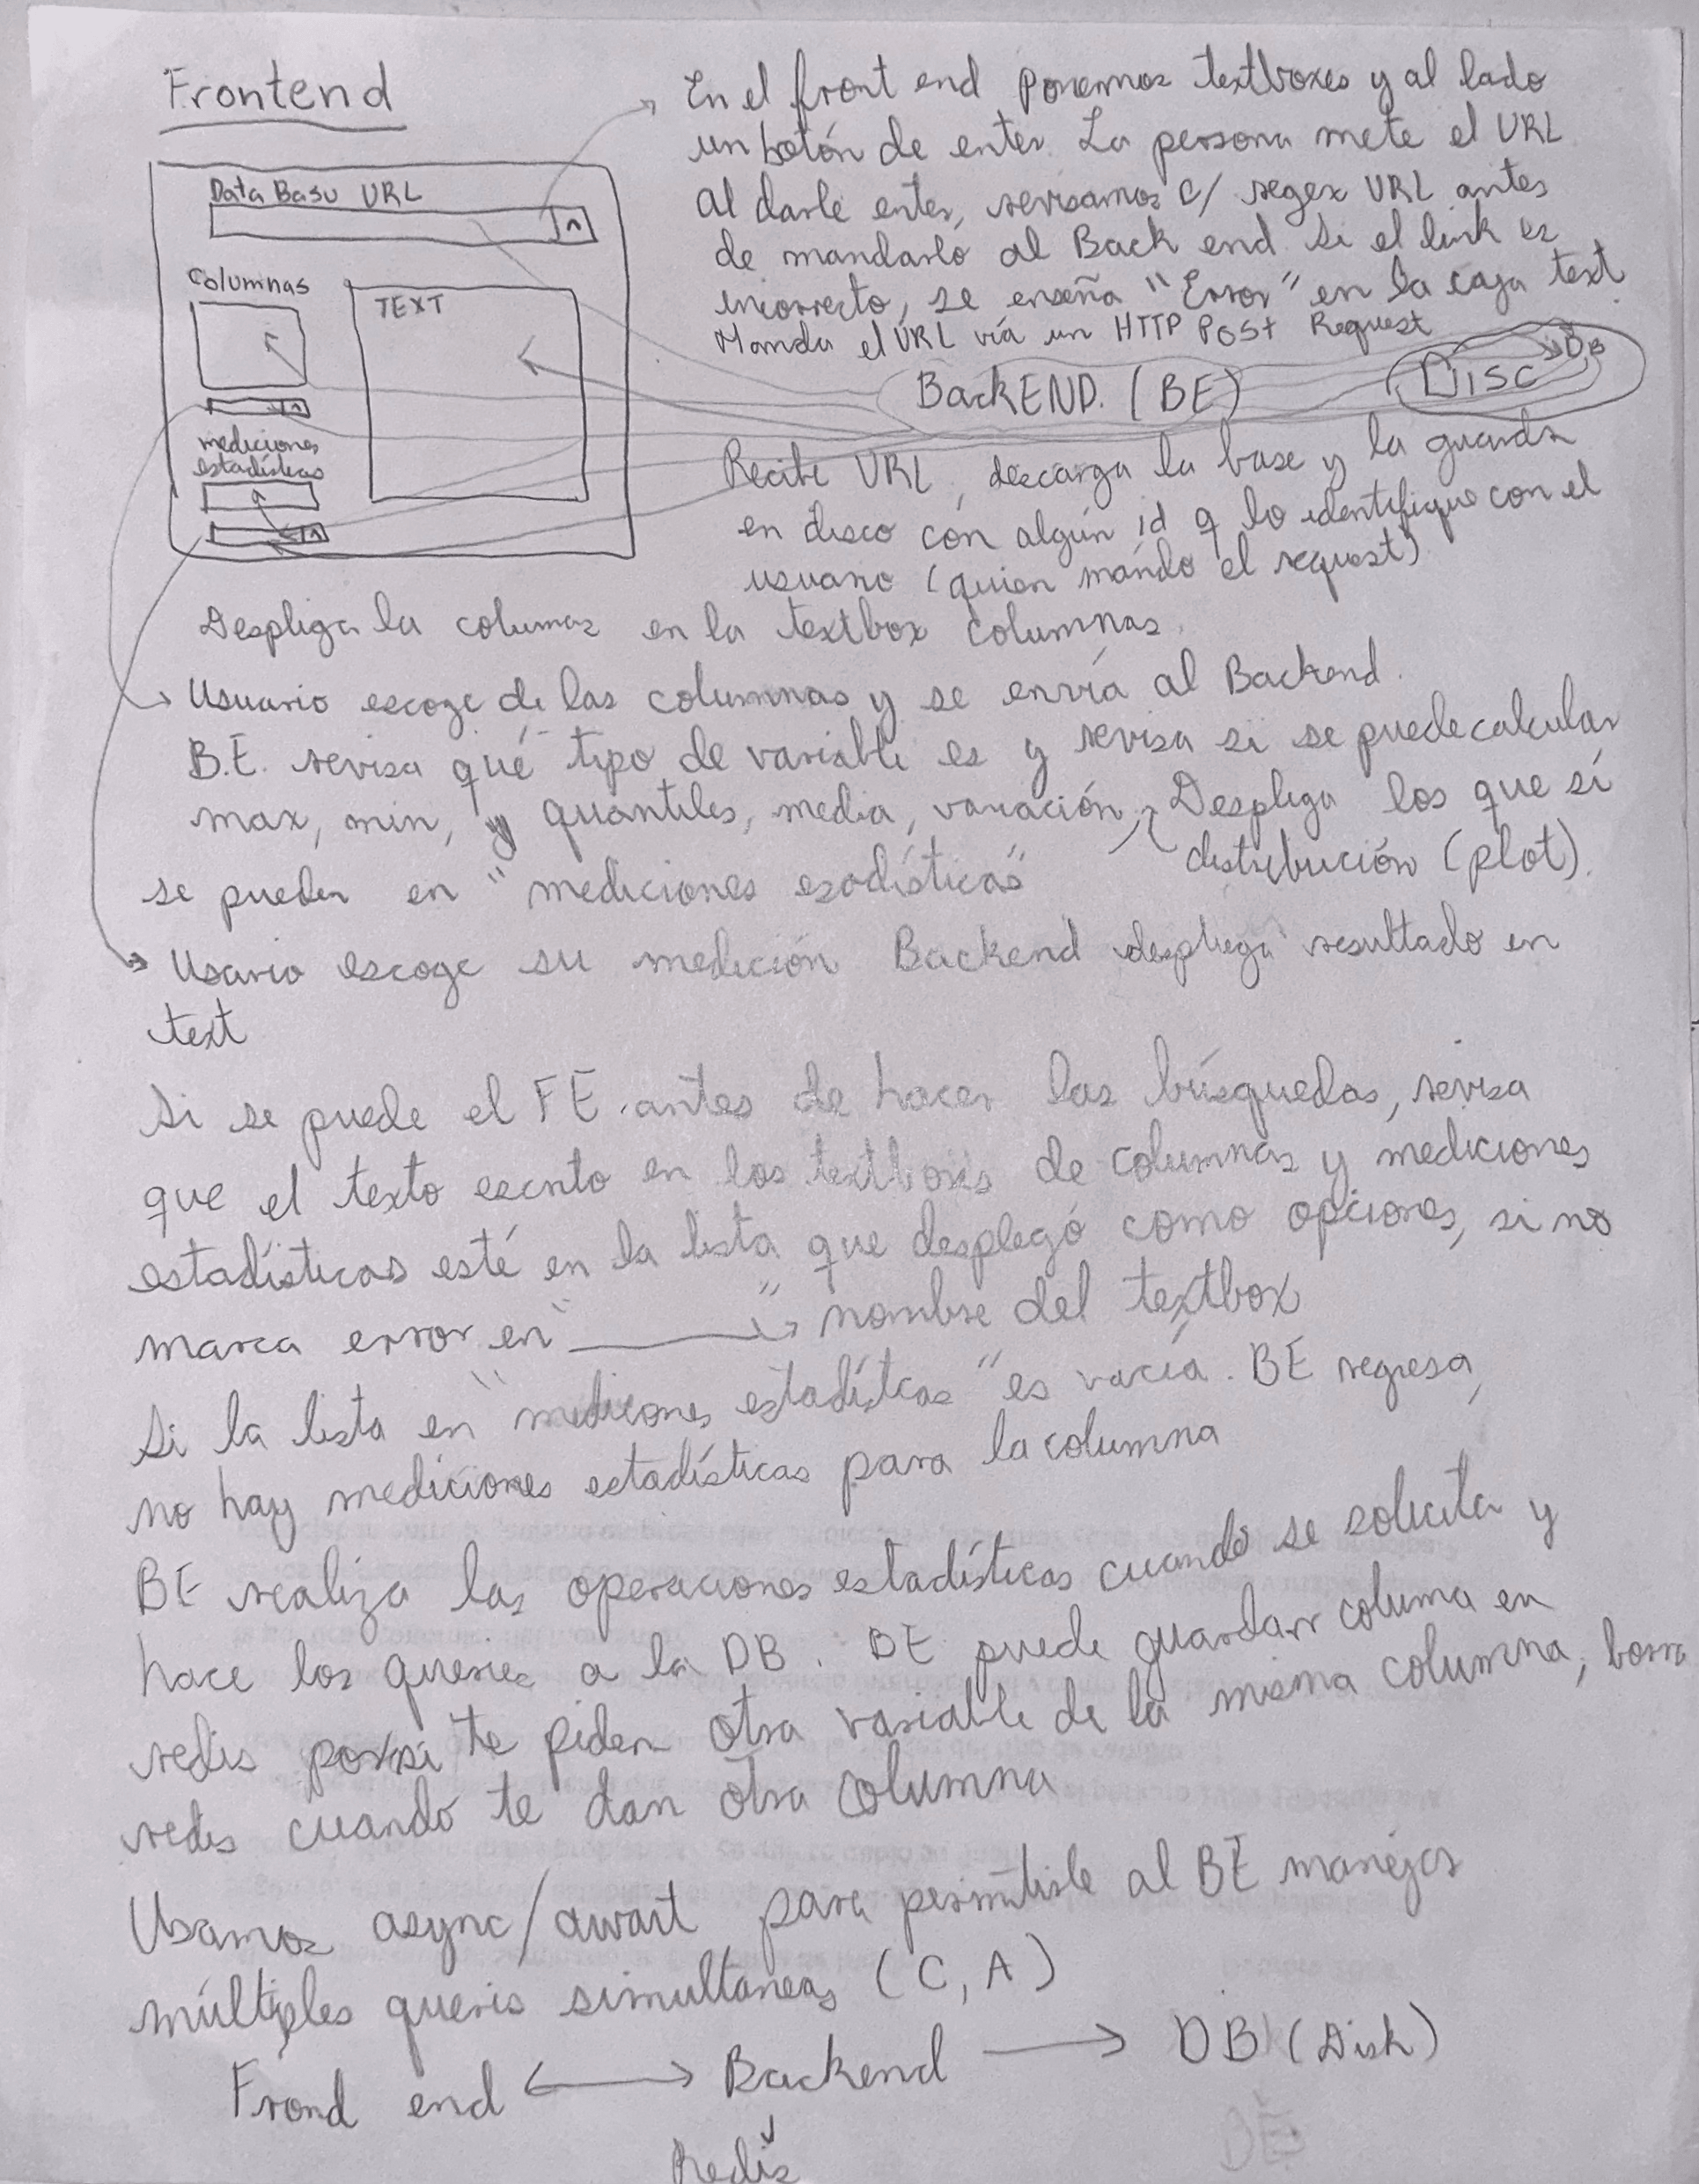 Frontend
Data Basu URL
Columnas
TEXT
mediciones
estadísticas
En el front end ponermos textboxes y al lado
un botón de enter. La persona mete el URL
Al darle enter, revisamos c/ regex URL antes
de mandarlo al Back end. Si el link es
incorrecto, se enseña "Error" en la caja text
Manda el URL vía un HTTP POSt Request
BackEND. (BE)
DISC
DB
Recibe URL, descarga la base y la guarda
en disco con algún id q lo identifique con el
usuario (quien mando el request)
Despliga la columas en la textbox columnas.
Usuario escoge de las columnas y se envía al Backend.
B.E. revisa qué tipo de variable es y revisa si se puede calcular
max, min, y quantiles, media, variación, Despliga los que sí
distribución (plot).
se pueden en "mediciones esadísticas"
Usario escoge su medición Backend despliega resultado en
text
Si se puede el FE antes de hacer las búsquedas, revisa
que el texto escrito en los textboxes de columnas y mediciones
estadísticas esté en la lista que desplegó como opciones, si no
marca error en "______" nombre del textbox
Si la lista en "mediciones estadístcas" es vacía. BE regresa,
no hay mediciones estadísticas para la columna
BE realiza las operaciones estadísticas cuando se solicita y
hace los queries a la DB. BE puede guardar columa en
redis por si te piden otra variable de la misma columna, borra
redis cuando te dan otra columna
Usamos async/await para permitirle al BE manejar
múltiples queris simultaneas (C, A)
Frond end ⟷ Backend ⟶ DB (Disk)
Redis
BE